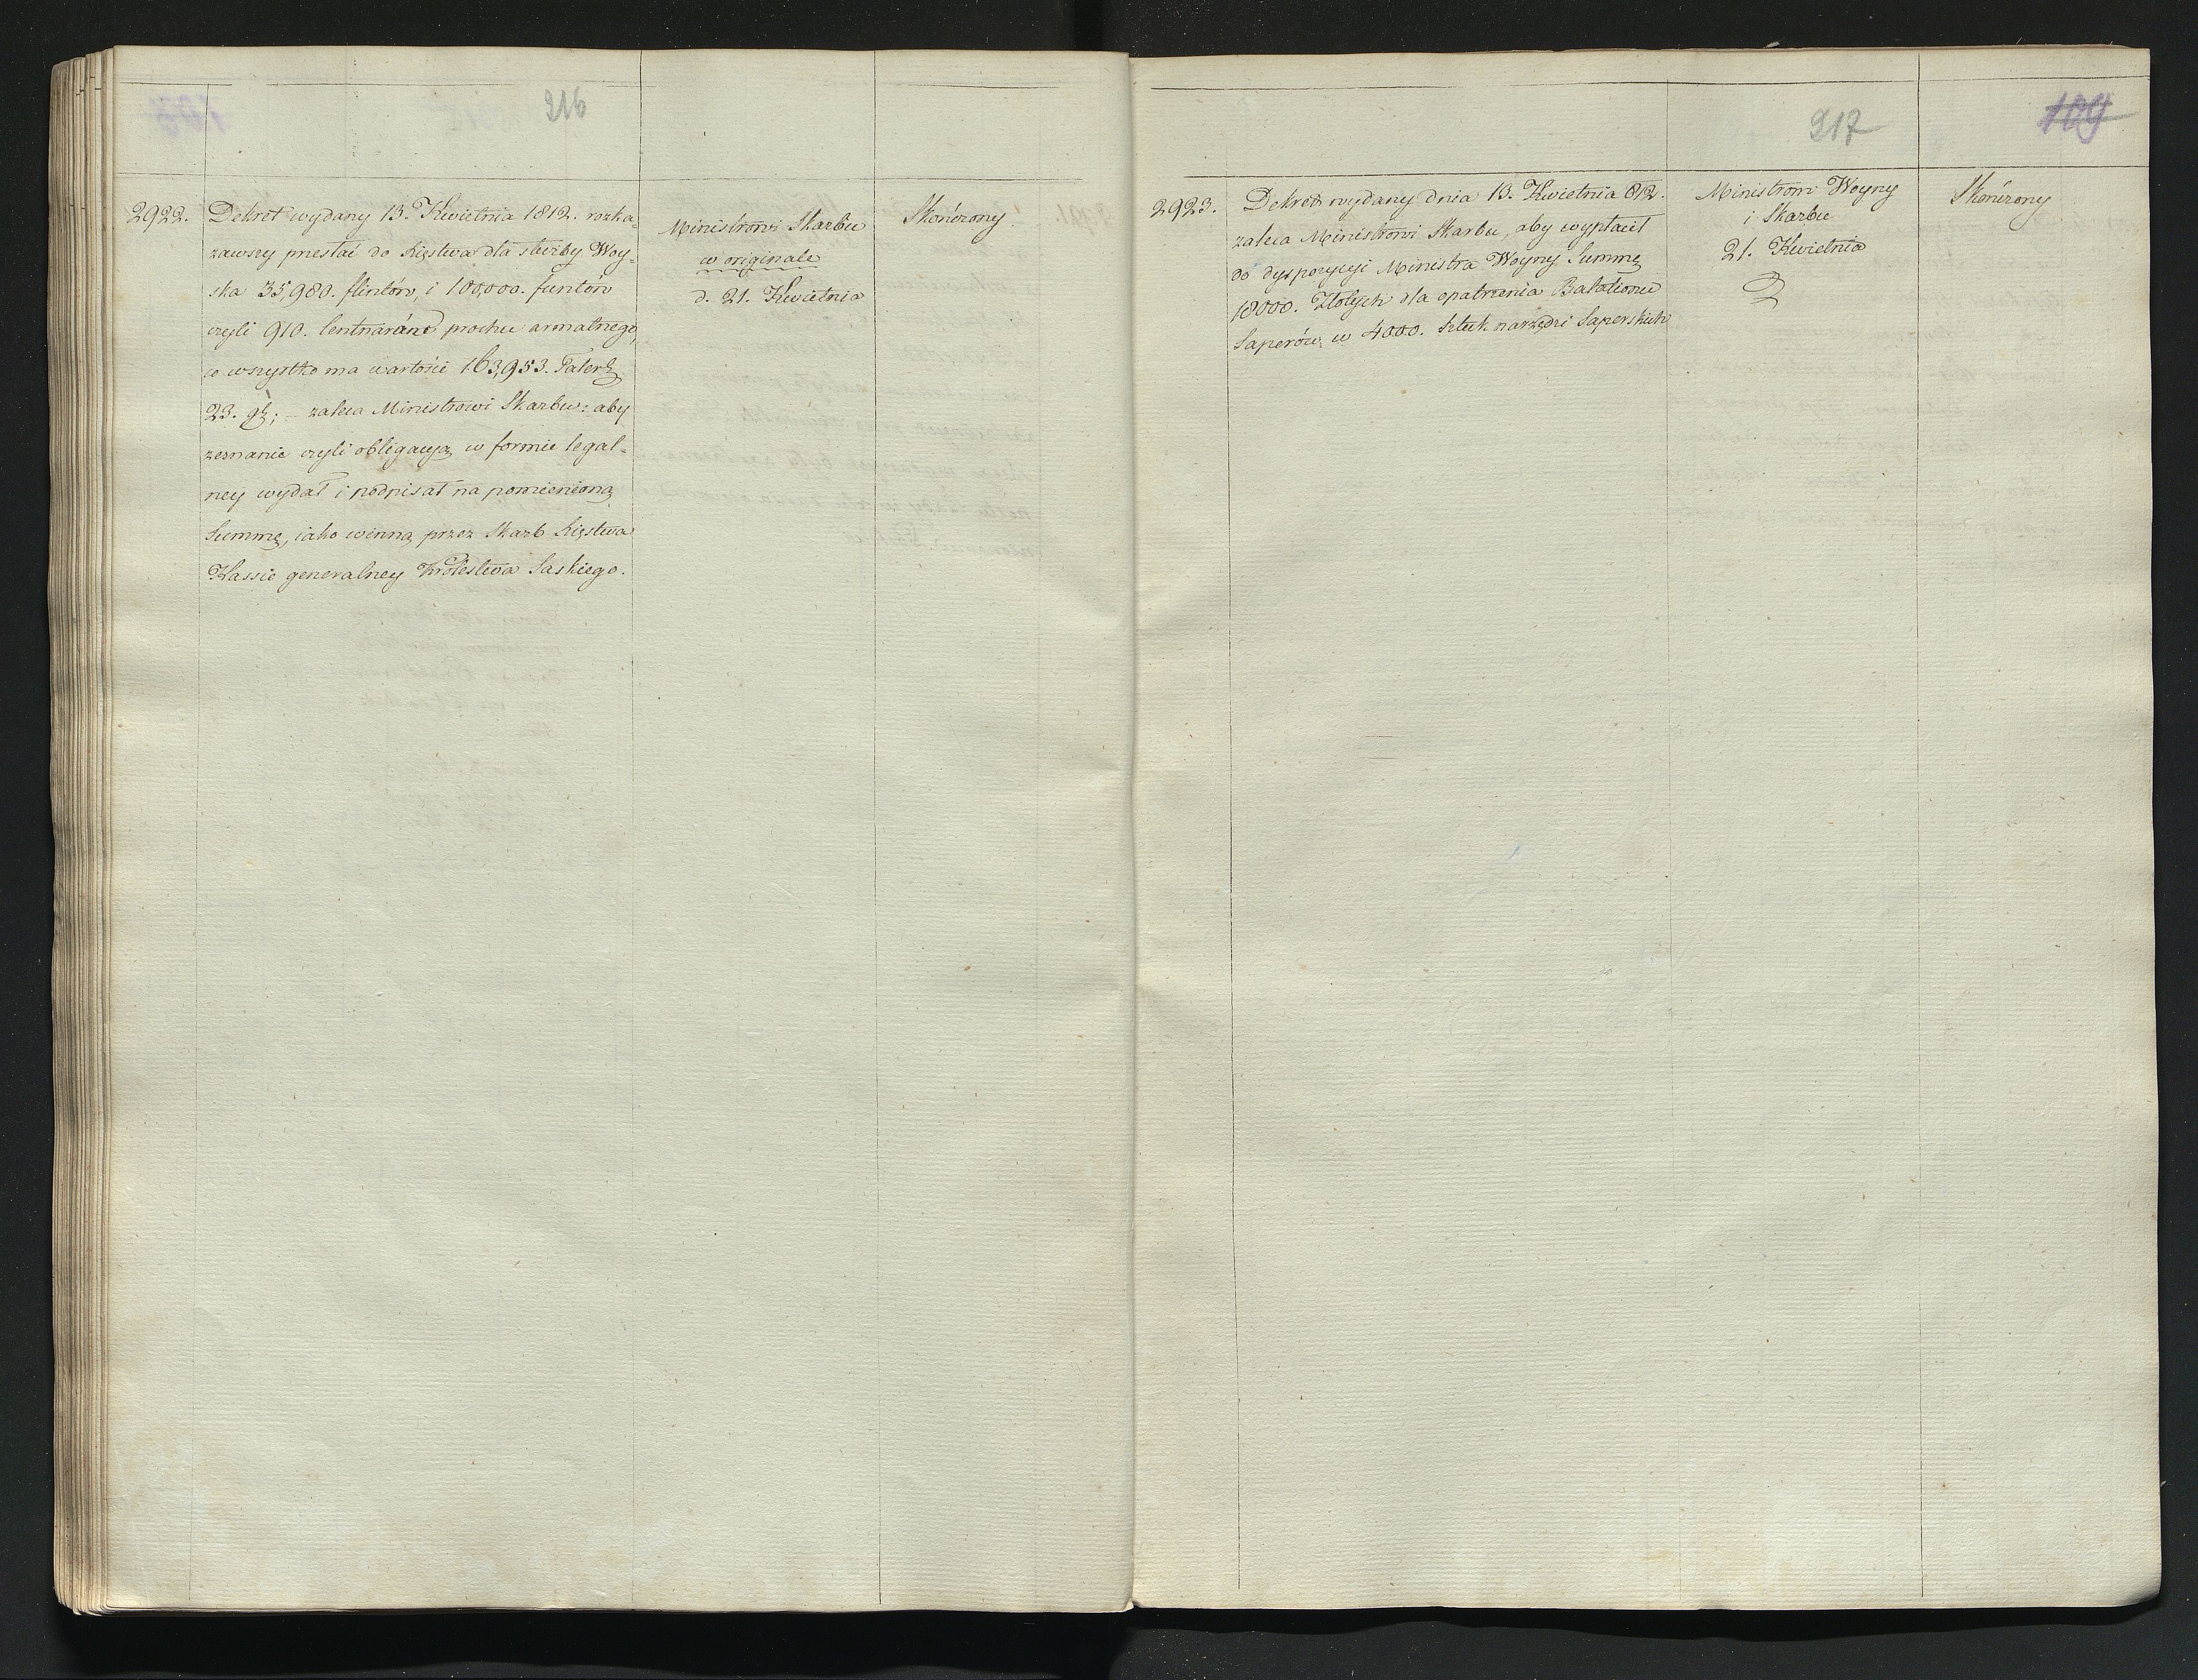 216
2922.
Dekret wydany 13. Kwietnia 1812. rozka-
zawszy przesłać do Xięstwa dla służby Woy-
ska 35,980. flintów, i 100,000. funtów
czyli 910. Centnarów prochu armatnego,
co wszystko ma wartości 163,953. Taler
23. gr; – zaleca Ministrowi Skarbu: aby
zeznanie czyli obligacyą w formie legal-
ney wydał i podpisał na pomienioną
Summę, iako winną przez Skarb Xięstwa
Kassie generalney Królestwa Saskiego.
Ministrowi Skarbu
w originale
d. 21. Kwietnia
Skończony.
217
109
2923.
Dekret wydany dnia 13. Kwietnia 812.
zaleca Ministrowi Skarbu, aby wypłacił
do dyspozycyi Ministra Woyny Summę
18000. Złotych dla opatrzenia Batalionu
Saperów, w 4000. Sztuk narzędzi Saperskich
Ministrom Woyny
i Skarbu
21. Kwietnia
Skończony